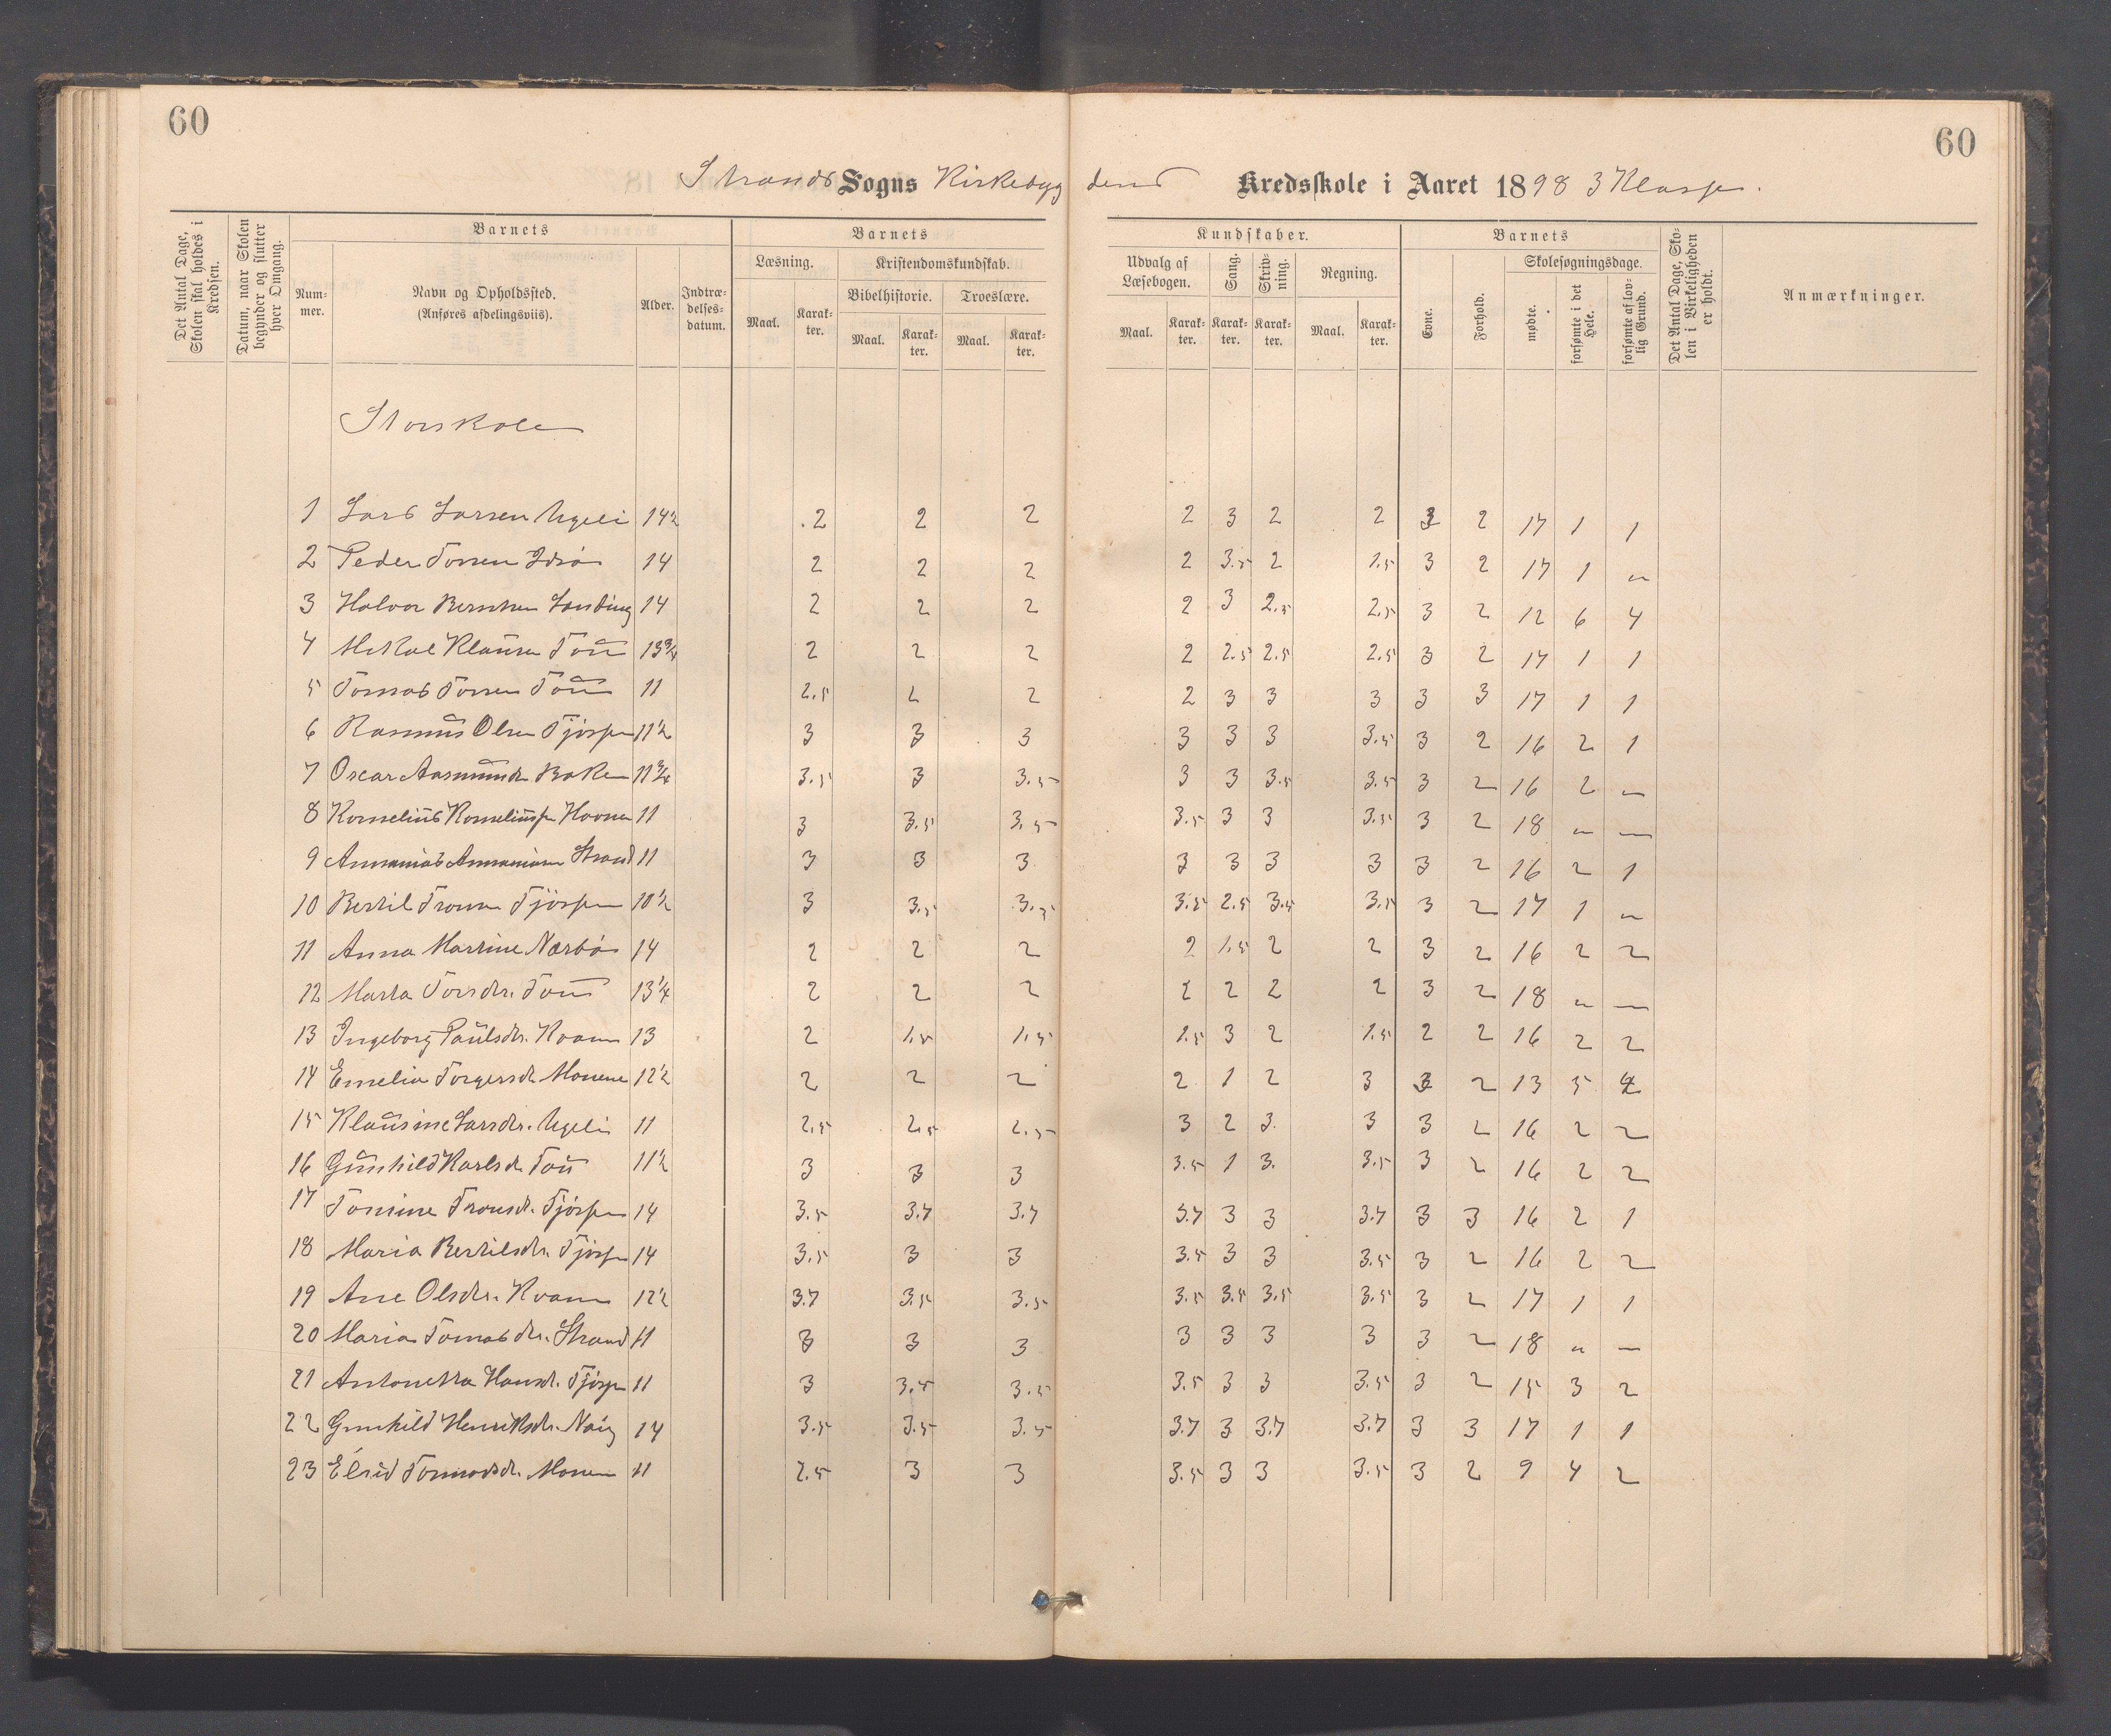 60
60
Strands Sogns Kirkebygdens Kredsskole i Aaret 1898 3 Klasse.
Det Antal Dage, Skolen skal holdes i Kredsen.
Datum, naar Skolen begynder og slutter hver Omgang.
Barnets
Num-mer.
Navn og Opholdssted. (Anføres afdelingsviis).
Alder.
Indtræ-delses-datum.
Barnets
Læsning.
Maal. Karak-ter.
Kristendomskundskab.
Bibelhistorie. Troeslære.
Maal. Karak-ter. Maal. Karak-ter.
Kundskaber.
Udvalg af Læsebogen. Sang. Skriv-ning. Regning.
Maal. Karak-ter. Karak-ter. Karak-ter. Maal. Karak-ter.
Barnets
Evne. Forhold.
Skolesøgningsdage.
mødte. forsømte i det Hele. forsømte af lov-lig Grund.
Det Antal Dage, Sko-len i Virkeligheden er holdt.
Anmærkninger.
Storskole
1 Lars Larsen Ugeli 14½ 2 2 2 2 3 2 2 3 2 17 1 1
2 Peder Torsen Idsø 14 2 2 2 2 3.5 2 1.5 3 2 17 1 "
3 Halvor 14 2 2 2 2 3 2.5 2.5 3 2 12 6 4
4 Mikal Klausen Tou 13¾ 2 2 2 2 2.5 2.5 2.5 3 2 17 1 1
5 Tomas Torsen Tou 11 2.5 2 2 2 3 3 3 3 3 17 1 1
6 Rasmus Olsen Fjørsen 11½ 3 3 3 3 3 3 3.5 3 2 16 2 1
7 Oscar Aasmunds. Bakken 11¾ 3.5 3 3.5 3 3 3.5 3.5 3 2 16 2 "
8 Kornelius Korneliuss. 11 3 3.5 3.5 3.5 3 3 3.5 3 2 18 " —
9 Annanias Annaniasen Strand 11 3 3 3 3 3 3 3 3 2 16 2 1
10 Bertil 10½ 3 3.5 3.5 3.5 2.5 3.5 3.5 3 2 17 1 "
11 Anna Martine Nærbø 14 2 2 2 2 1.5 2 2 3 2 16 2 2
12 Marta Torsdtr. Tou 13¼ 2 2 2 2 2 2 2 3 2 18 " —
13 Ingeborg Paulsdtr. Kvam 13 2 1.5 1.5 1.5 3 2 1.5 2 2 16 2 2
14 Emelia Torgersdt. 12½ 2 2 2 2 1 2 3 3 2 13 5 4
15 Klausine Larsdtr. Ugeli 11 2.5 2.5 2.5 3 2 3. 3 3 2 16 2 2
16 Gunhild Karlsdt. Tou 11½ 3 3 3 3.5 1 3. 3.5 3 2 16 2 2
17 Tomine 14 3.5 3.7 3.7 3.7 3 3 3.7 3 3 16 2 1
18 Maria Bertilsdtr. 14 3.5 3 3 3.5 3 3 3.5 3 2 16 2 2
19 Ane Olsdtr. Kvam 12½ 3.7 3.5 3.5 3.5 3.5 3.5 3.5 3 2 17 1 1
20 Maria Tomasdtr. Strand 11 3 3 3 3 3 3 3 3 2 18 " —
21 Antonetta Hansdt. 11 3 3.5 3.5 3.5 3 3 3.5 3 2 15 3 2
22 Gunhild Henriksdtr. 14 3.5 3.5 3.5 3.7 3 3.7 3.7 3 3 17 1 1
23 11 2.5 3 3 3.5 3 3 3.5 3 2 9 4 2